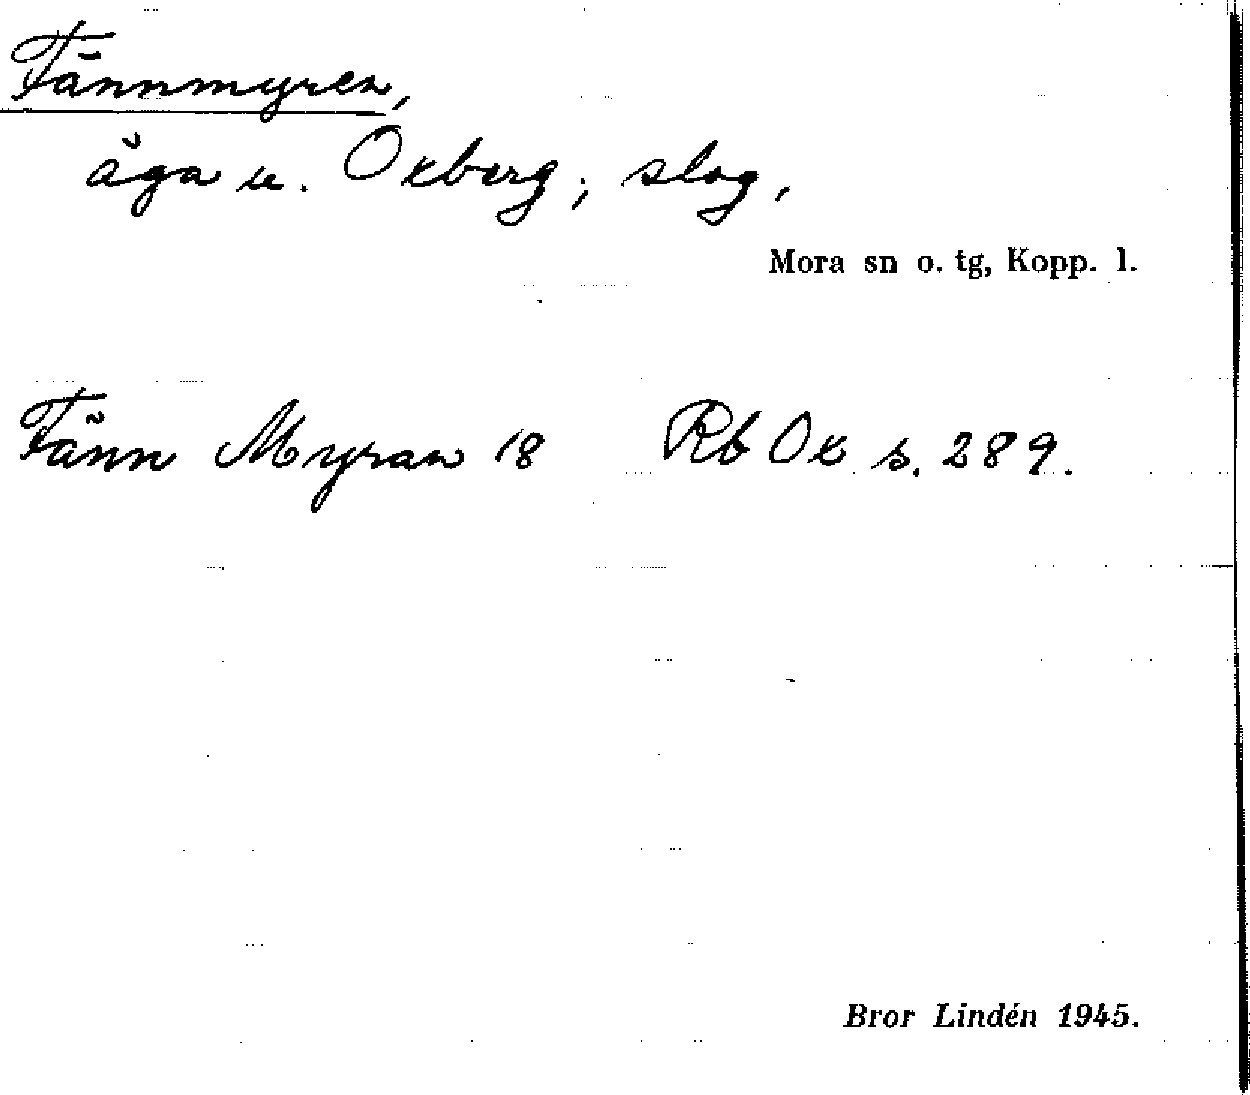 Tännmyren,
äga u. Oxberg; slog,
Mora sn o. tg, Kopp. l.
Tänn Myran 18 Rb Ox s. 289.
Bror Lindén 1945.